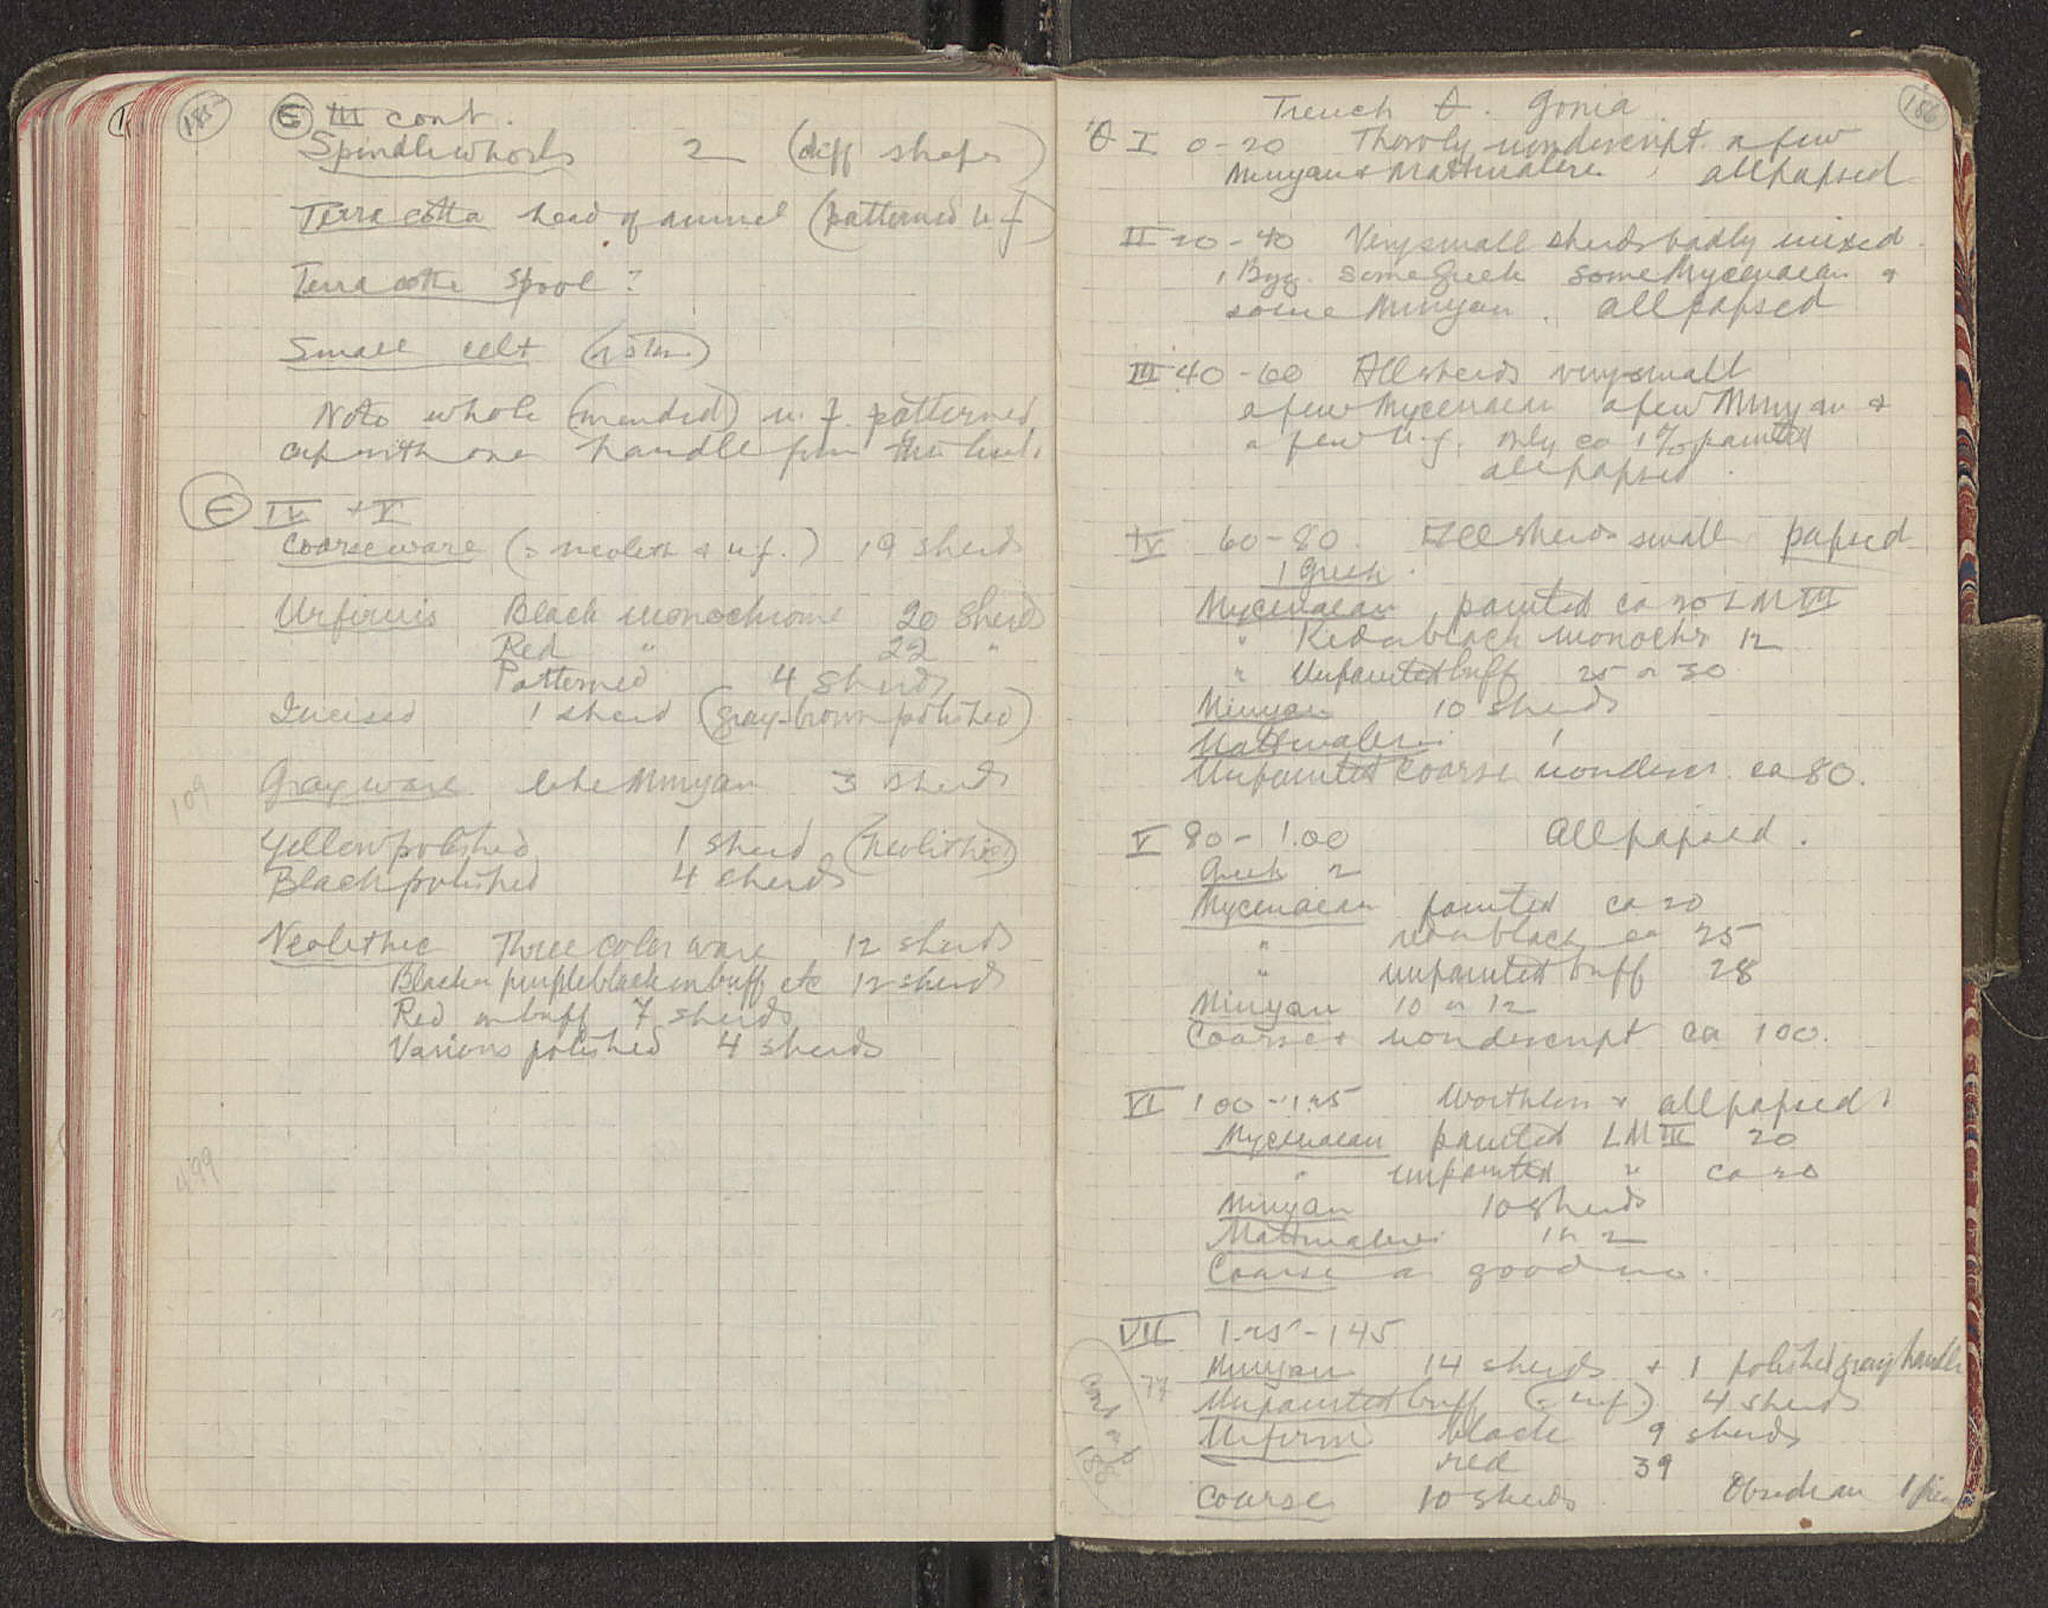 185
E III cont.
Spindlewhorls 2 (diff shapes)
Terra cotta head of animal (patterned u.f)
Terra cotta spool?
Small celt
Note whole (mended) u. f. patterned
cup with one handle from this level.
E IV + V
Coarse ware (= neolith & u.f.) 19 sherds
Urfirnis Black monochrome 20 sherds
Red " 22 "
Patterned 4 sherds
Incised 1 sherd (gray-brown polished)
109
Gray ware like Minyan 3 sherds
Yellow polished 1 sherd (neolithic)
Black polished 4 sherds
Neolithic Three color ware 12 sherds
Black or purple black on buff etc 12 sherds
Red on buff 7 sherds
Various polished 4 sherds
499
186
Trench θ. Gonia.
θ I 0-20 Thoroly nondescript. a few
Minyan & Mattmalerei. all papsed
II 20-40 Very small sherds badly mixed.
1 Byz. some Greek some Mycenaean &
some Minyan. all papsed
III 40-60 All sherds very small
a few Mycenaean a few Minyan &
a few u.f. only ca 1% painted
all papsed.
IV 60-80. All sherds small papsed
1 Greek.
Mycenaean painted ca 20 LM III
" Red or black monochr 12
" Unpainted buff 25 or 30
Minyan 10 sherds
Mattmalerei 1
Unpainted coarse nondescr. ca 80.
V 80-1.00 all papsed.
Greek 2
Mycenaean painted ca 20
" red or black ca 25
" unpainted buff 28
Minyan 10 or 12
Coarse & nondescript ca 100.
VI 100-1.25 Worthless & all papsed.
Mycenaean painted LM III 20
" unpainted " ca 20
Minyan 10 sherds
Mattmalerei 1 or 2
Coarse a good no.
VII 1.25-145
77 Minyan 14 sherds + 1 polished gray handle
Unpainted buff (= u.f.) 4 sherds
Urfirnis black 9 sherds
red 39
Coarse 10 sherds Obsidian 1
cont on p 188